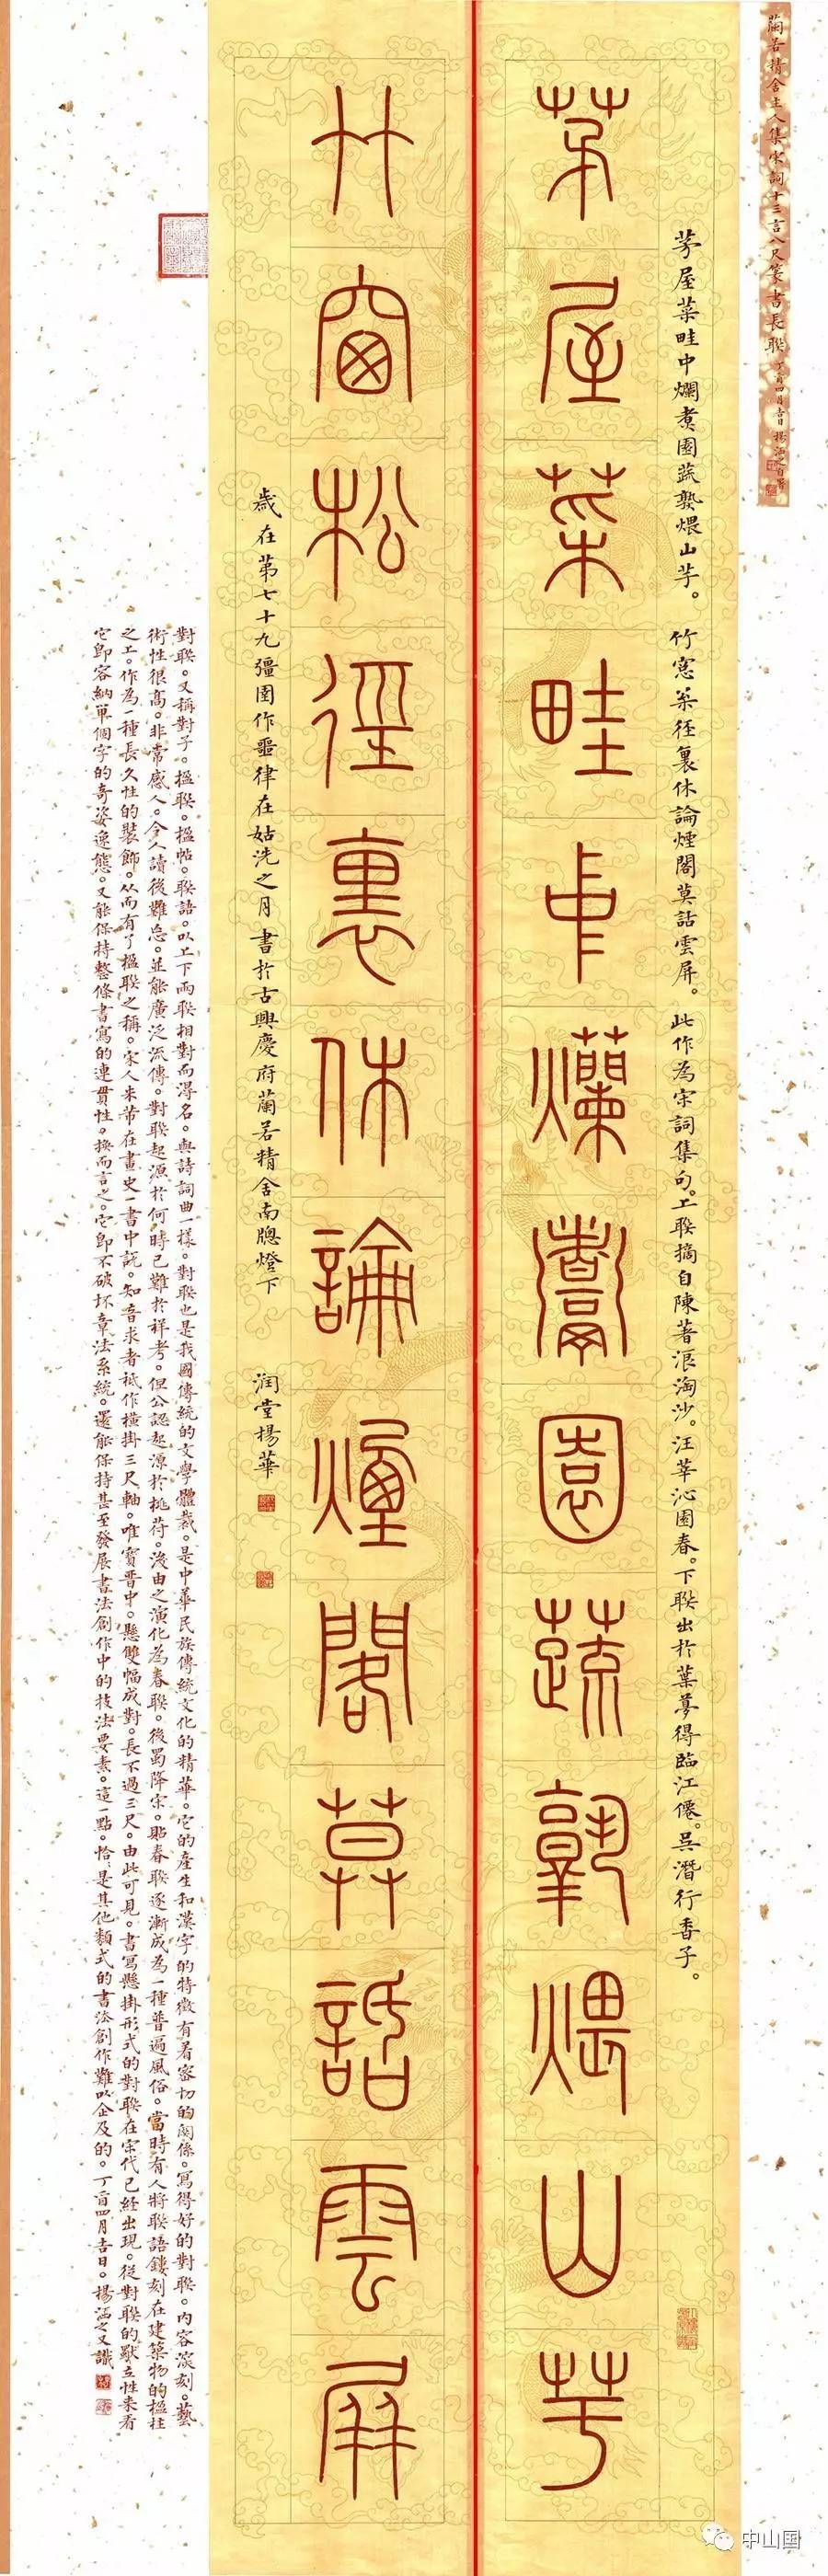 蘭若精舍主人集宋詞十三言八尺篆書長聯 丁酉四月吉日 楊
茅屋菜畦中爛煮園蔬熟煨山芋。竹窗松徑裏休論煙閣莫話雲屏。此作為宋詞集句。上聯摘自陳著浪淘沙。汪莘沁園春。下聯出於葉夢得臨江僊。吳潛行香子。
茅屋菜畦中爛煮園蔬熟煨山芋
竹窗松徑裏休論煙閣莫話雲屏
歲在第七十九彊圉作噩律在姑洗之月書於古興慶府蘭若精舍南牕燈下 润堂楊華
對聯。又稱對子。楹聯。楹帖。聯語。以上下兩聯相對而得名。與詩詞曲一樣。對聯也是我國傳統的文學體裁。是中華民族傳統文化的精華。它的產生和漢字的特徵有着密切的關係。寫得好的對聯。內容深刻。藝
術性很高。非常感人。令人讀後難忘。並能廣泛流傳。對聯起源於何時已難於祥考。但公認起源於桃符。後由之演化為春聯。後蜀降宋。貼春聯逐漸成為一種普遍風俗。當時有人將聯語鏤刻在建築物的楹柱
之上。作為一種長久性的裝飾。从而有了楹聯之稱。宋人米芾在畫史一書中說。知音求者祗作橫掛三尺軸。唯寶晋中。懸雙幅成對。長不過三尺。由此可見。書寫懸掛形式的對聯在宋代已經出現。從對聯的獨立性来看
它即容納單個字的奇姿逸態。又能保持整條書寫的連貫性。換而言之。它即不破坏章法系統。還能保持甚至發展書法創作中的技法要素。這一點。恰是其他類式的書法創作難以企及的。丁酉四月吉日。楊 之又識
中山国